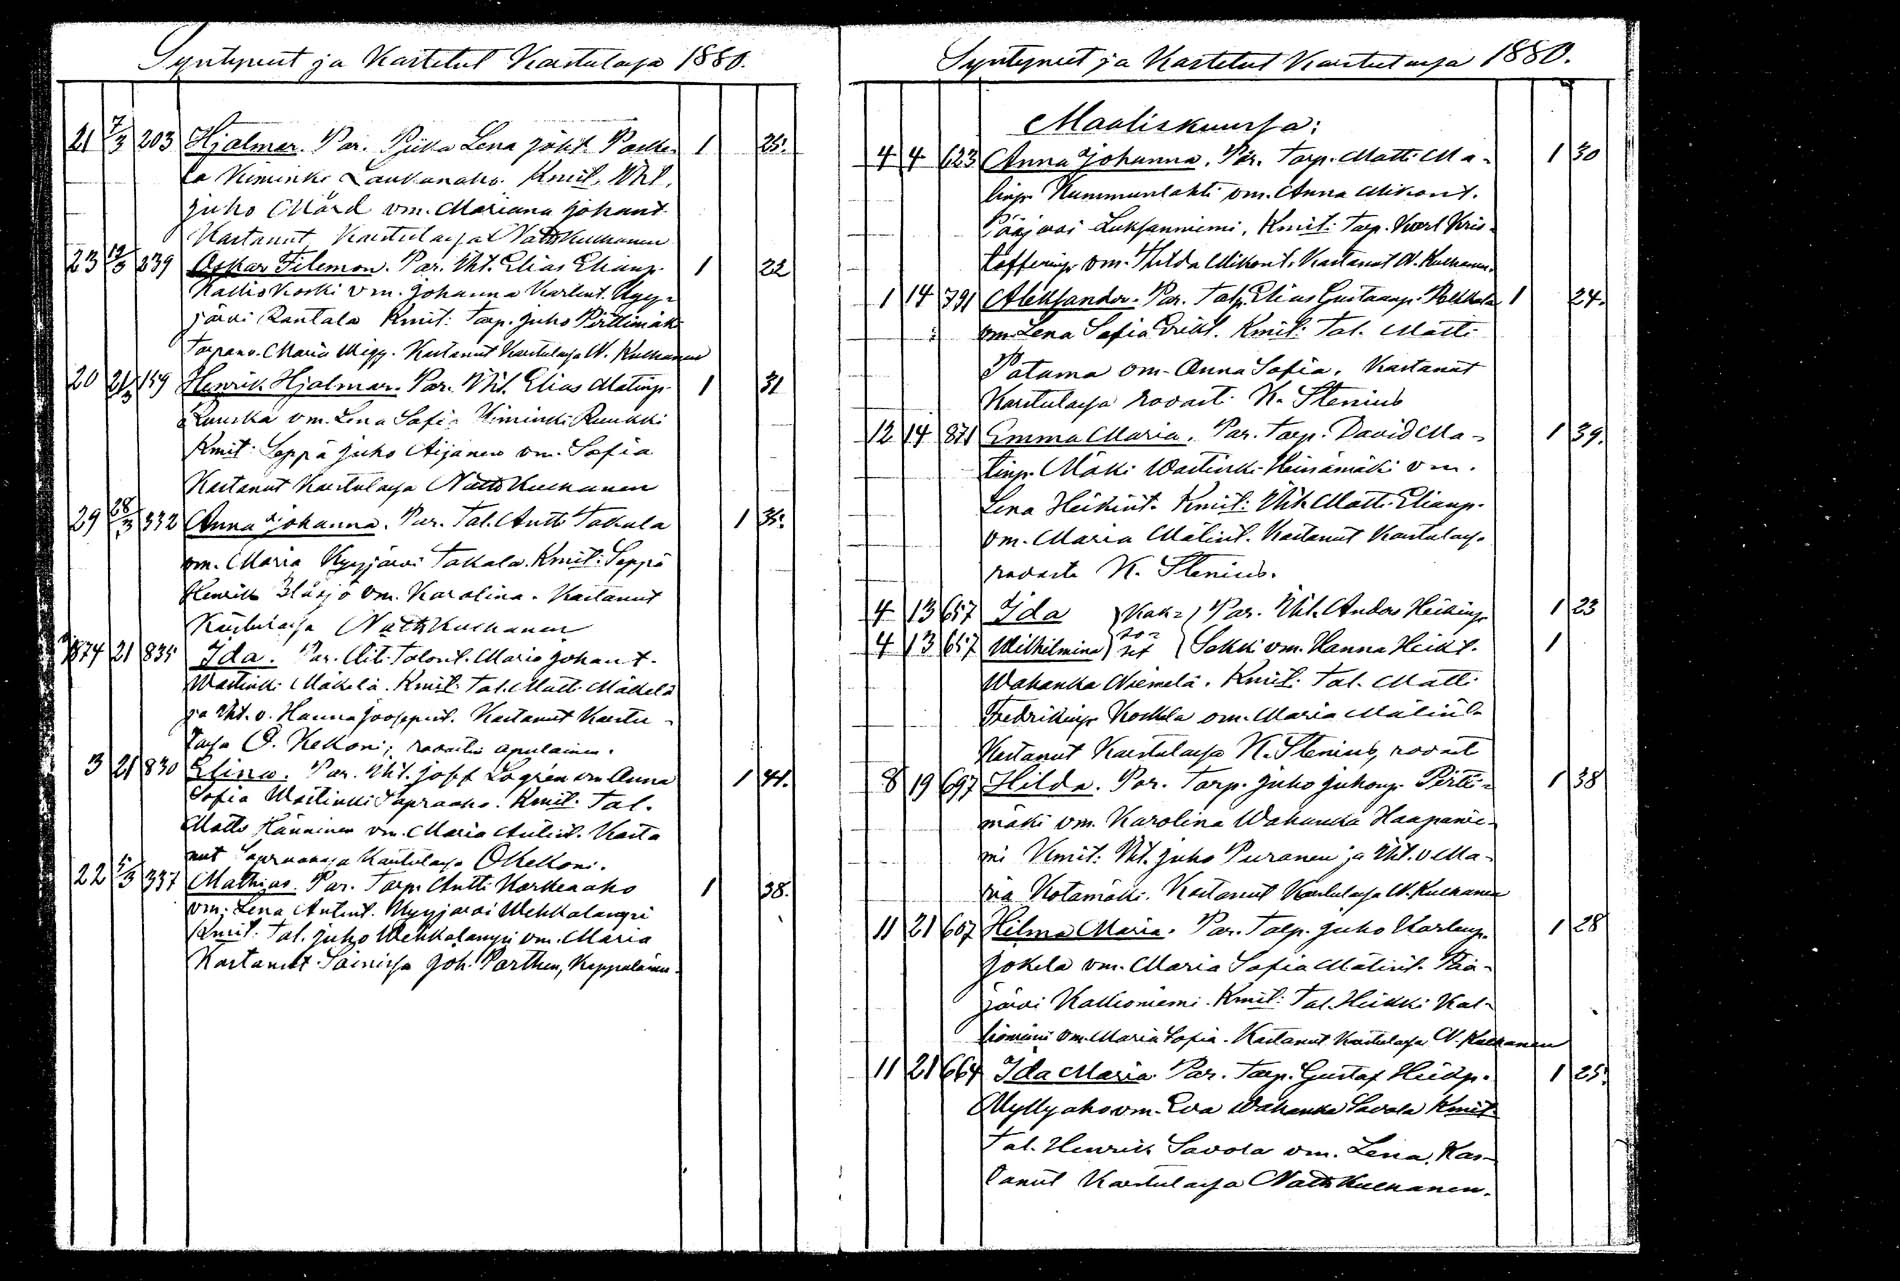 Syntyneet ja Kastetut Karstulassa 1880.
21 7/3 203 Hjalmar. Par. Piika Lena Joht. Paske- 1 25.
la Kiminki Laukanaho. Kmit. Vht.
Juho Mård vm. Mariana Johant.
Kastanut Karstulassa Nath Kulhanen
23 12/3 239 Oskar Filemon. Par. Vht. Elias Eliasp. 1 22
Kalliokoski vm. Johanna Karlint. Kyy-
järvi Rantala Kmit: Torp. Juho Pirttimäki
Torparv. Maria Migg. Kastanut Karstulassa N. Kulhanen
20 21/3 159 Henrik Hjalmar. Par. Vht. Elias Matinp. 1 31
Ranska vm. Lena Sofia Kiminki Ruukki
Kmit: Seppä Juho Aijänen vm. Sofia
Kastanut Karstulassa Nath Kulhanen
29 28/3 332 Anna Johanna. Par. Tal. Antti Takala 1 35.
vm. Maria Kyyjärvi Takala. Kmit: Seppä
Henrik Blåsjö vm. Karolina. Kastanut
Karstulassa Nath Kulhanen
1874 21 835 Ida. Par. Äiti Talont. Maria Johant.
Wastinki Mäkelä. Kmit: Tal. Matti Mäkelä
ja Vht. v. Hanna Joosepint. Kastanut Karstu-
lassa O. Kekoni, rovastin apulainen.
3 21 830 Elina. Par. Vht. Josef Logrén vm Anna 1 41.
Sofia Wastinki Sapraaho. Kmit: Tal.
Matts Hänninen vm. Maria Antint. Kasta
nut Karstulassa O Kekoni.
22 5/3 337 Mathias. Par. Torp. Antti Korkeaaho 1 38.
vm. Lena Antint. Kyyjärvi Wehkalampi
Kmit: Tal. Juho Wehkalampi vm. Maria
Kastanut Soinissa Joh. Parthen, Kappalainen.
Syntyneet ja Kastetut Karstulassa 1880.
Maaliskuussa:
4 4 623 Anna Johanna. Par. Torp. Matti Ma- 1 30
tinp. Kummunlahti vm. Anna Mikont.
Pääjärvi Luksanniemi, Kmit: Torp. Karl Kris-
tofferinp vm. Hilda Mikont. Kastanut N. Kulhanen.
1 14 791 Aleksander. Par. Talp. Elias Gustaanp. Pekkala 1 24.
vm. Lena Sofia Erikt. Kmit: Tal. Matti
Patama vm. Anna Sofia. Kastanut
Karstulassa rovasti K. Stenius
12 14 871 Emma Maria. Par. Torp. David Ma- 1 39.
tinp. Mäki Wastinki Heinämäki vm.
Lena Heikint. Kmit: Vht. Matti Eliasp.
vm. Maria Matint. Kastanut Karstulassa
rovasti K. Stenius.
4 13 657 Ida Kak- Par. Vht. Anders Heikinp 1 23
so-
4 13 657 Wilhelmina set Sakki vm. Hanna Heikt. 1
Wahanka Niemelä. Kmit: Tal. Matti
Fredrikinp Koskela vm. Maria Matint.
Kastanut Karstulassa K. Stenius, rovasti
8 19 697 Hilda. Par. Torp. Juho Juhonp. Pirtti- 1 38
mäki vm. Karolina Wahanka Haapanie-
mi Kmit: Vht. Juho Puranen ja Vht. v Ma-
ria Kotamäki. Kastanut Karstulassa N. Kulhanen
11 21 607 Hilma Maria. Par. Torp. Juho Karlinp. 1 28
Jokela vm. Maria Sofia Matint. Pää-
järvi Kallioniemi. Kmit: Tal. Heikki Kal-
lioniemi vm. Maria Sofia. Kastanut Karstulassa N. Kulhanen
11 21 664 Ida Maria. Par. Torp. Gustaf Heikp. 1 25.
Myllyaho vm. Eva Wahanka Savola Kmit:
Tal. Henrik Savola vm. Lena. Kas-
tanut Karstulassa Nath Kulhanen.